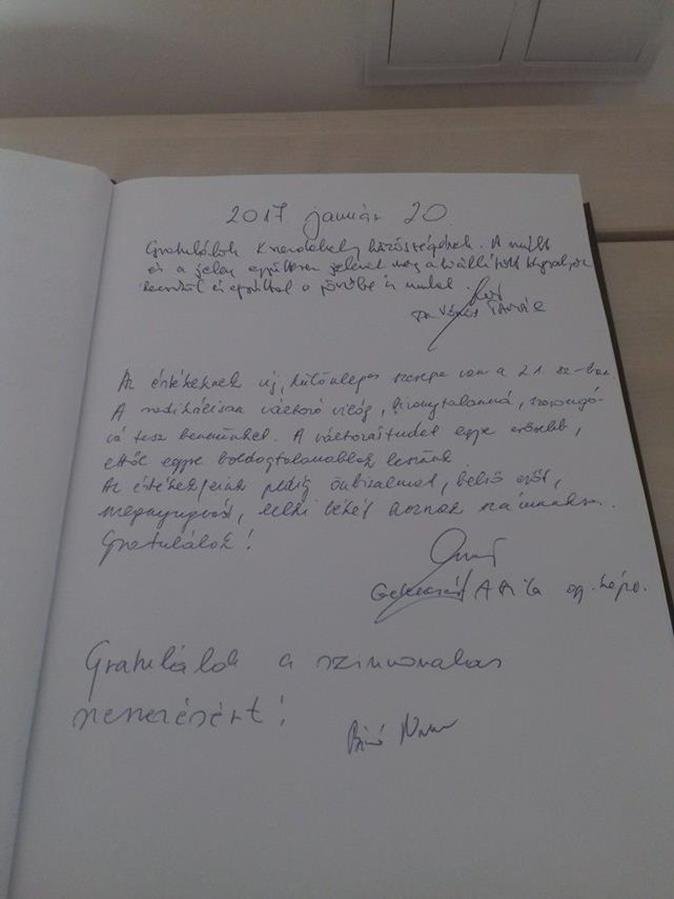 2017 január 20.
Gratulálok Kisvendehely közösségének. A múlt
és a jelen együttesen jelenik meg a kiállított
és egyúttal a jövőbe is mutat.
Dr Vörös Tamás
Az értékeknek új, különleges szerepe van a 21. sz-ban.
A radikálisan változó világ, bizonytalanná, szorongó-
vá tesz bennünket. A változástudat egyre erősebb,
ettől egyre boldogtalanabbak leszünk.
Az értékeink pedig önbizalmat, belső erőt,
megnyugvást, lelki békét hoznak számunkra.
Gratulálok!
Attila og. képv.
Gratulálok a színvonalas
szervezésért!
Bíró